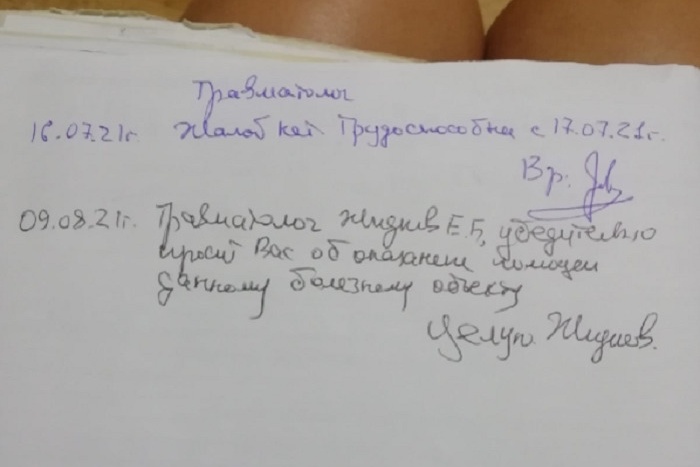 Травматолог
16.07.21г. Жалоб нет Трудоспособна с 17.07.21г.
Вр.
09.08.21г. Травматолог Жиднев Е.Б, убедительно
просит Вас об оказании помощи
данному болезному объекту
Целую. Жиднев.